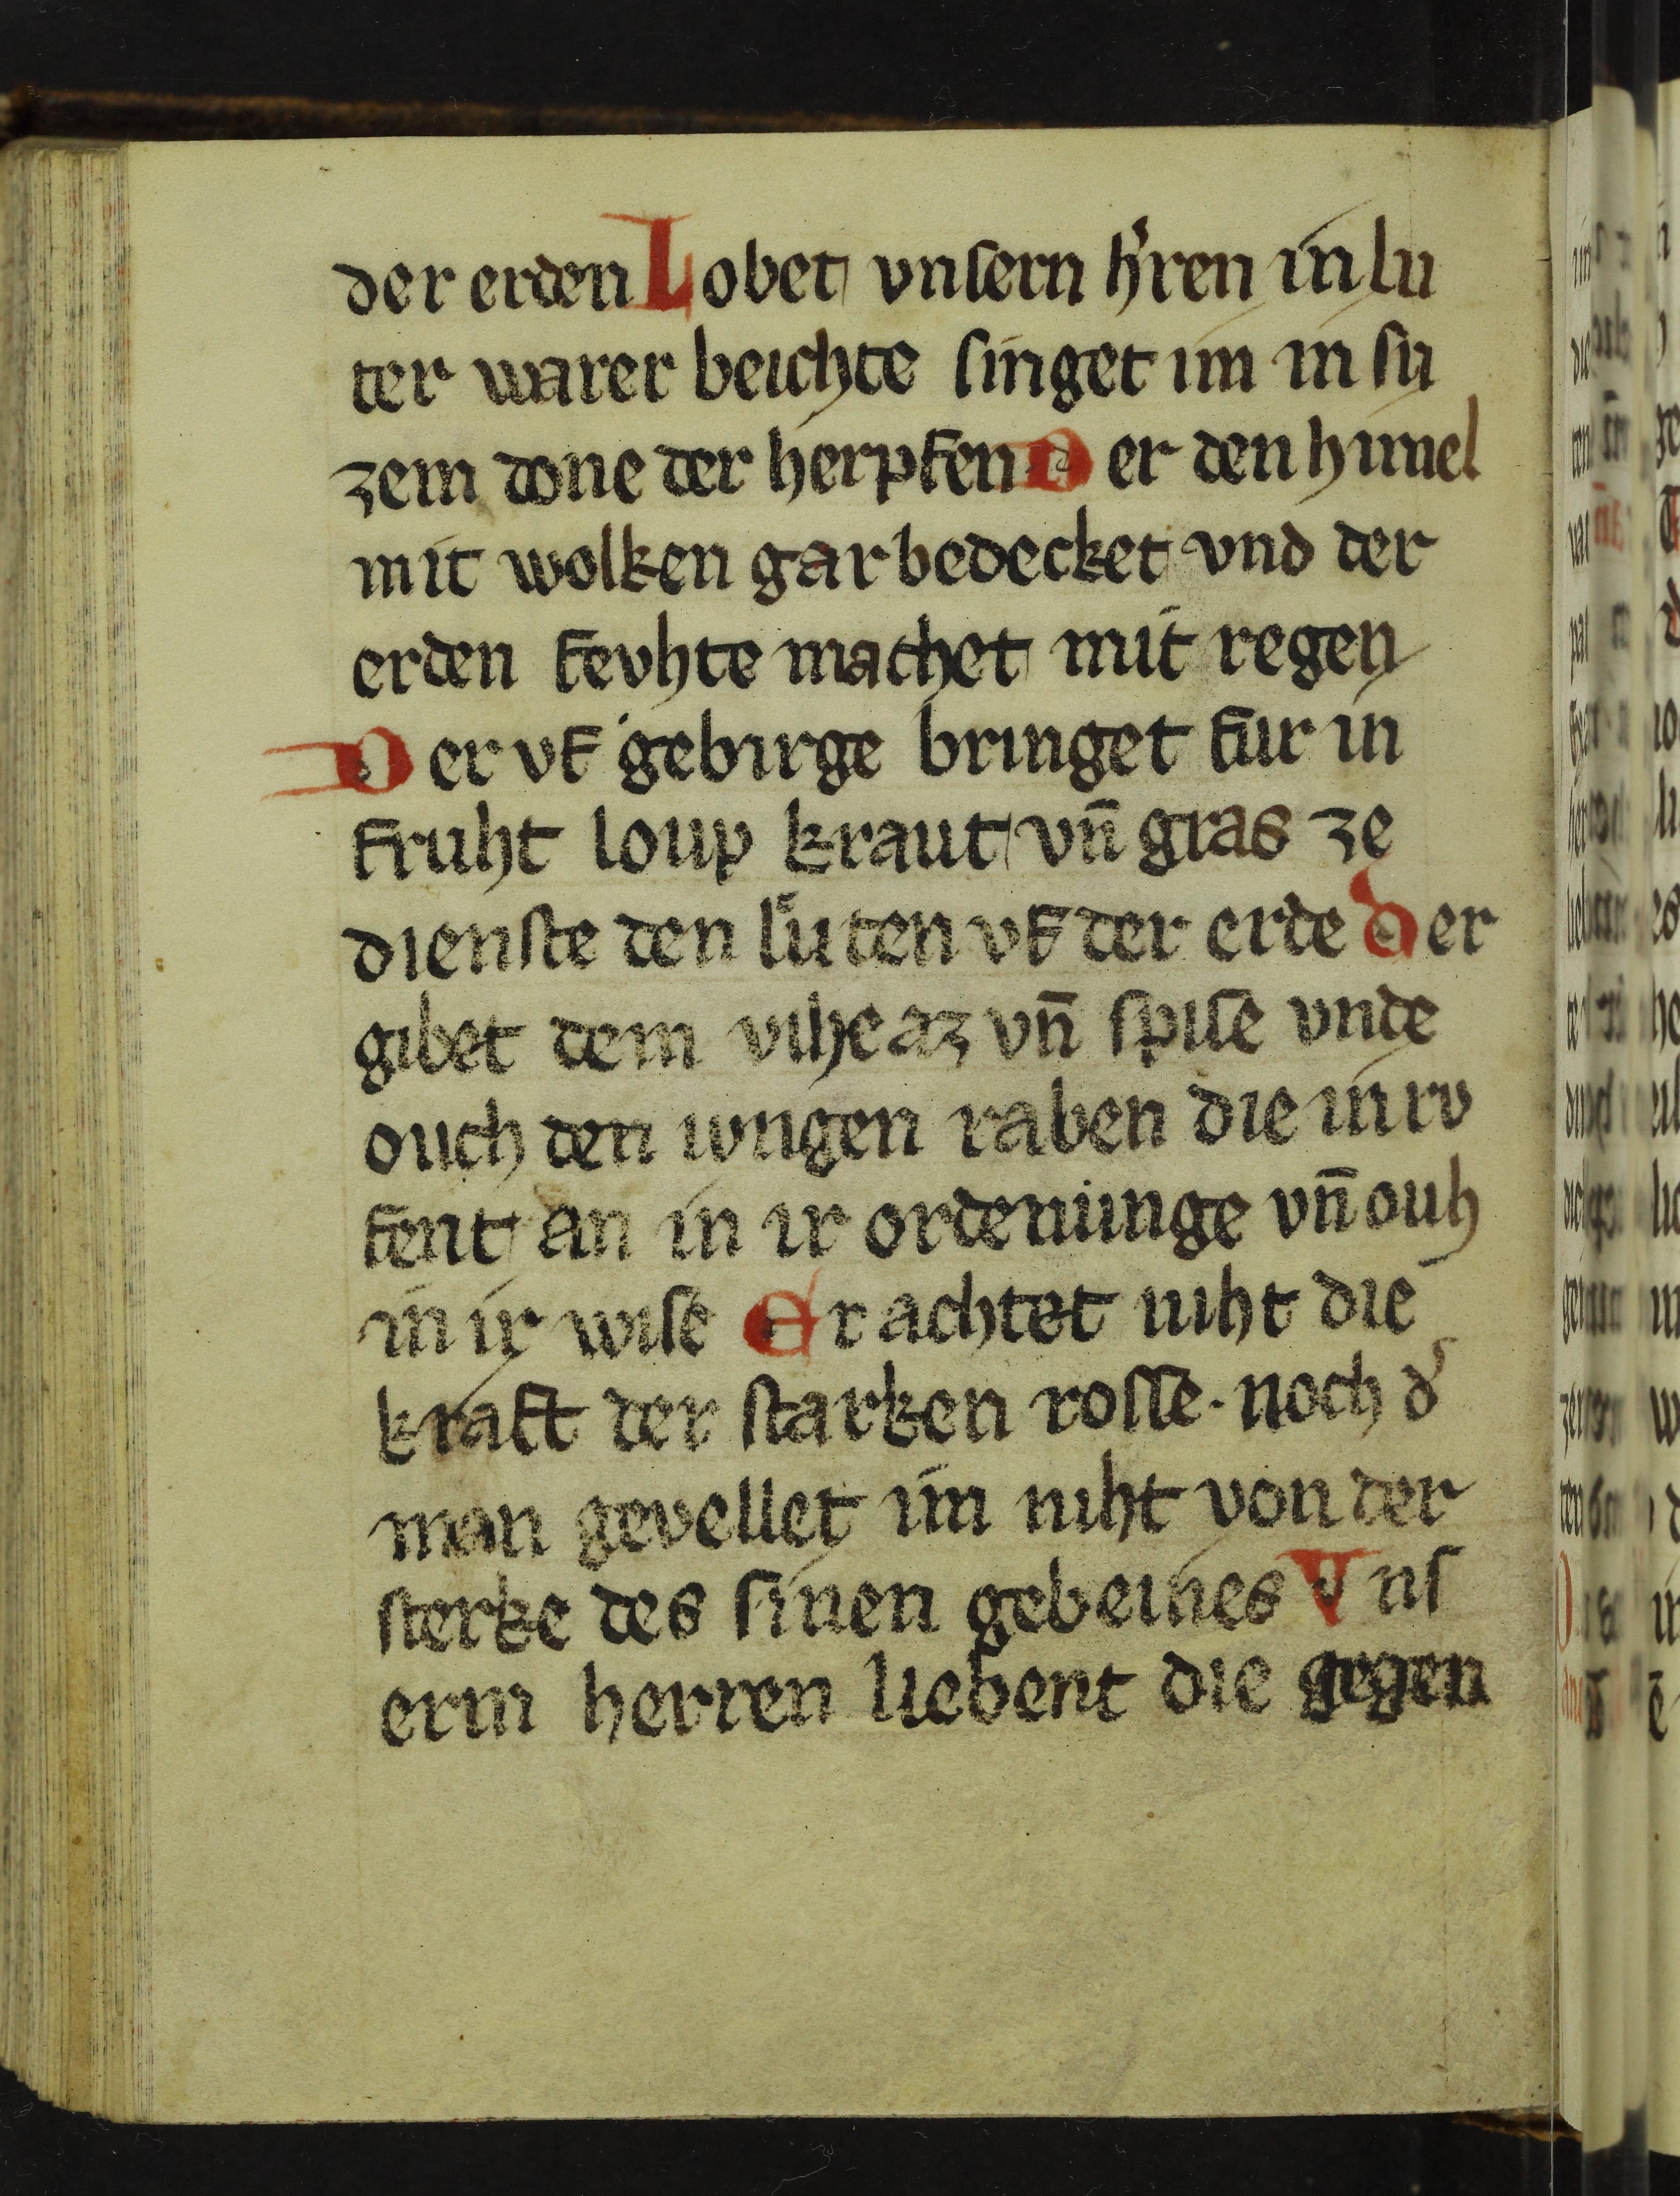 der erden Lobet vnsern h'ren in lu
ter warer beichte singet im in sü
zem done der herpfen Der den himel
mit wolken gar bedecket vnd der
erden fevhte machet mit regen
Der vf gebirge bringet fur in
fruht loup kraut vn̄ gras ze
dienste den lüten vf der erde der
gibet dem vihe az vn̄ spise vnde
ouch den iungen raben die in rv
fent an in ir ordenunge vn̄ ouh
in ir wise Er achtet niht die
kraft der starken rosse · noch d'
man gevellet im niht von der
sterke des sinen gebeines Vns
erm herren liebent die gegen